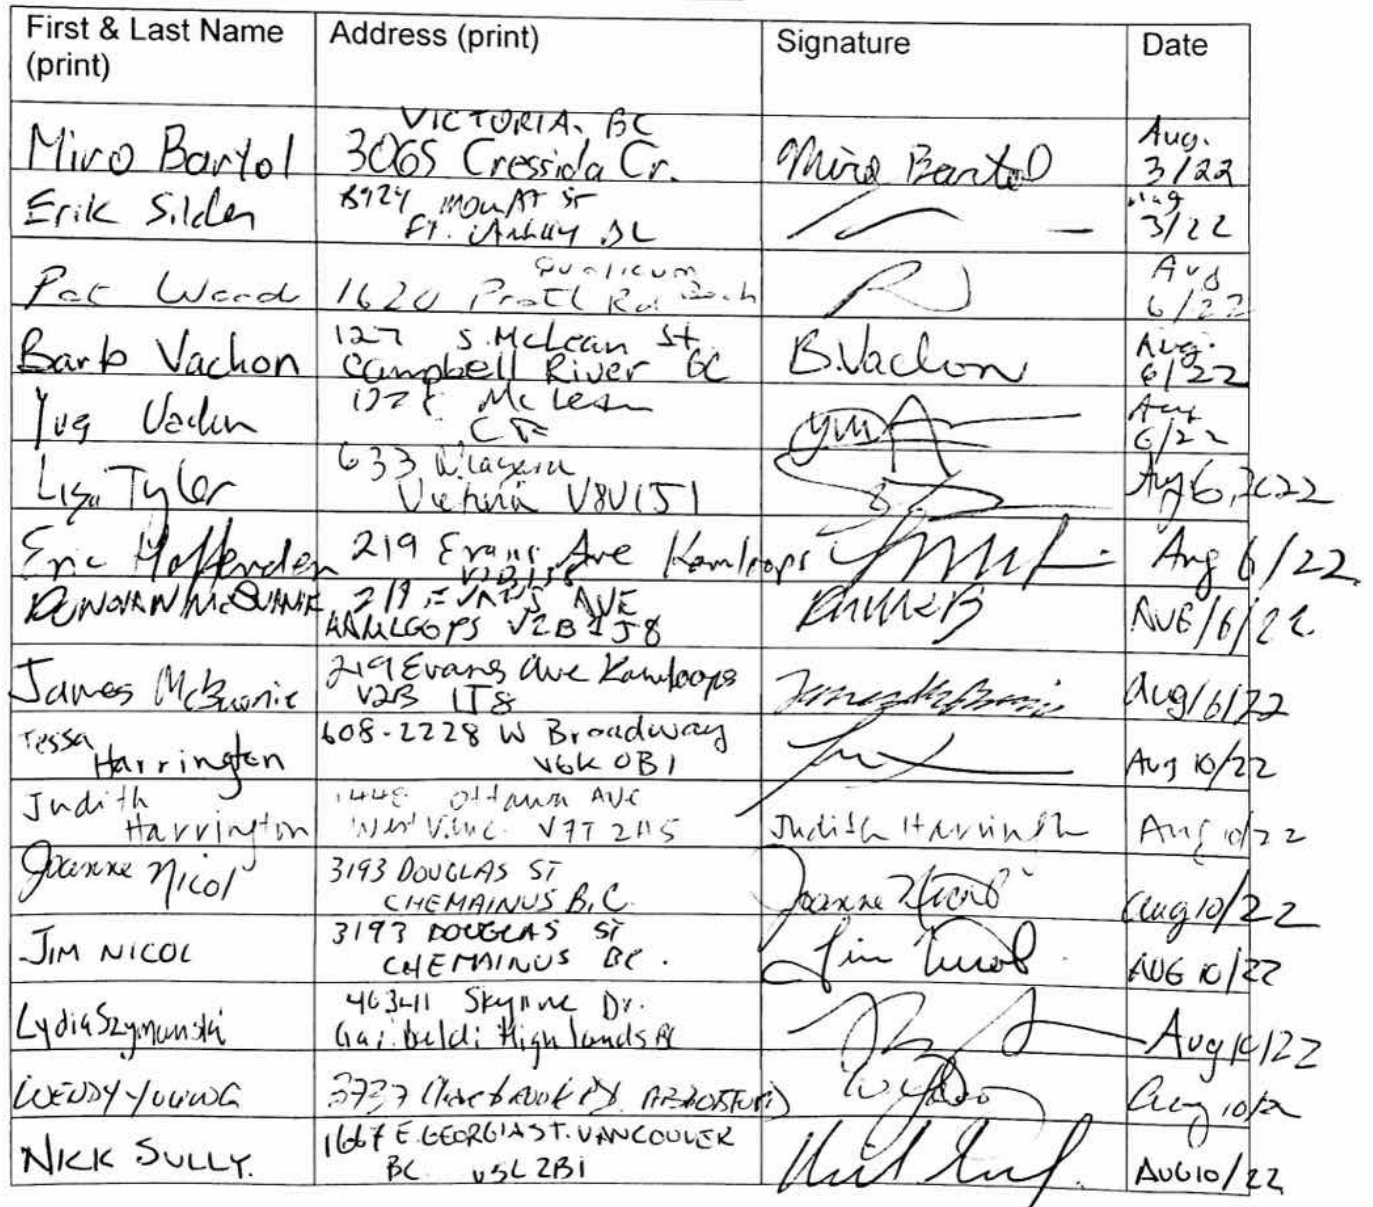 First & Last Name
(print)
Address (print)
Signature
Date
Miro Bartol
VICTORIA, BC
3065 Cressida Cr.
Miro Bartol
Aug.
3/22
Erik
8924
St
Ft.
3/22
Pat Wood
1620
Rd
Qualicum
Aug
6/22
Barb Vachon
127 S. McLean St.
Campbell River BC
B.Vachon
Aug.
6/22
McLean
Aug
6/22
Lisa Tyler
633 Niagara
Victoria V8V1J1
Aug 6, 2022
Eric Haffenden
219 Evans Ave Kamloops
Aug 6/22
DONOVAN
219 EVANS AVE
KAMLOOPS V2B 1J8
AUG/6/22
James McBurnie
219 Evans Ave Kamloops
V2B 1T8
Aug/6/22
Tessa
Harrington
608-2228 W Broadway
V6K 0B1
Aug 10/22
Judith
Harrington
1448 Ottawa Ave
West Vanc. V7T 2H5
Judith Harrington
Aug 10/22
Joanne Nicol
3193 DOUGLAS ST
CHEMAINUS B.C.
Joanne Nicol
Aug 10/22
JIM NICOL
3193 DOUGLAS ST
CHEMAINUS BC.
Jim Nicol
AUG 10/22
Lydia Szymanski
Dr.
Garibaldi Highlands BC
Aug 10/22
WENDY YOUNG
3737
Aug 10/22
NICK SULLY.
1667 E. GEORGIA ST. VANCOUVER
BC V5L 2B1
AUG 10/22